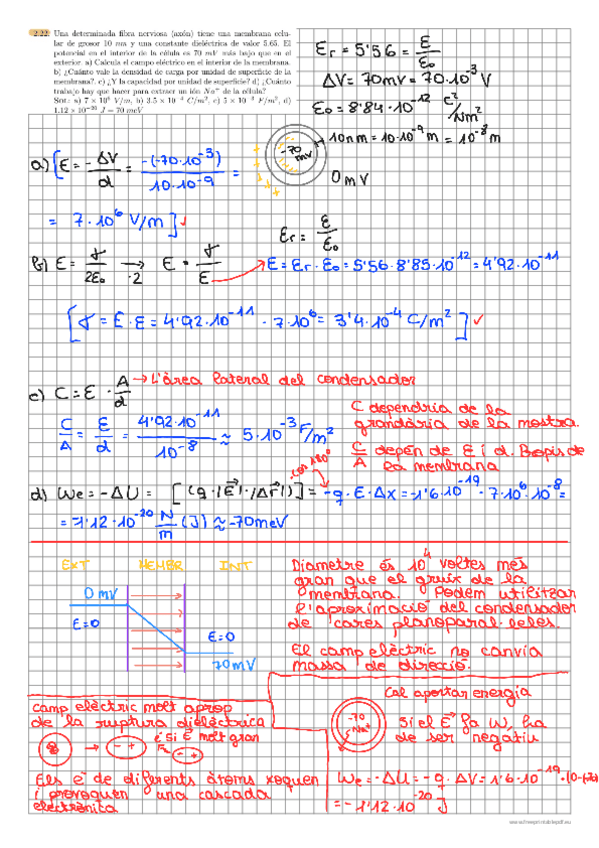 2.22. Una determinada fibra nerviosa (axón) tiene una membrana celu-
lar de grosor 10 nm y una constante dieléctrica de valor 5.65. El
potencial en el interior de la célula es 70 mV más bajo que en el
exterior. a) Calcula el campo eléctrico en el interior de la membrana.
b) ¿Cuánto vale la densidad de carga por unidad de superficie de la
membrana?. c) ¿Y la capacidad por unidad de superficie? d) ¿Cuánto
trabajo hay que hacer para extraer un ión Na+ de la célula?
Sol: a) 7 × 10⁶ V/m, b) 3.5 × 10⁻⁴ C/m², c) 5 × 10⁻³ F/m², d)
1.12 × 10⁻²⁰ J = 70 meV
Er = 5'56 = ε/ε₀
ΔV = 70mV = 70·10⁻³ V
ε₀ = 8'84·10⁻¹² C²/Nm²
10nm = 10·10⁻⁹ m = 10⁻⁸ m
-70 mV
0mV
a) [E = -ΔV/d = -(-70·10⁻³)/10·10⁻⁹ =
= 7·10⁶ V/m] ✓
Er = ε/ε₀
b) E = σ/2ε₀ → ·2 E = σ/ε → ε = Er·ε₀ = 5'56·8'85·10⁻¹² = 4'92·10⁻¹¹
[σ = E·ε = 4'92·10⁻¹¹ · 7·10⁶ = 3'4·10⁻⁴ C/m²] ✓
c) C = ε · A/d → L'àrea lateral del condensador
C/A = ε/d = 4'92·10⁻¹¹/10⁻⁸ ≈ 5·10⁻³ F/m²
C dependria de la
grandària de la mostra.
C/A depèn de ε i d. Propis de
la membrana
cos 180º
d) We = -ΔU = [(q·|E|·|Δr|)] = -q·E·Δx = -1'6·10⁻¹⁹ · 7·10⁶ · 10⁻⁸ =
= -1'12·10⁻²⁰ N/m (J) ≈ -70meV
EXT MEMBR INT
0mV
E=0
E=0
70mV
Diametre és 10⁴ voltes més
gran que el gruix de la
membrana. Podem utilitzar
l'aproximació del condensador
de cares planoparal·leles.
El camp elèctric no canvia
massa de direcció.
camp elèctric molt aprop
de la ruptura dielèctrica
si E molt gran
Els e⁻ de diferents àtoms xoquen
i provoquen una cascada
electrònica
Cal aportar energia
-70
Na+
Si el E fa W, ha
de ser negatiu
We = -ΔU = -q·ΔV = 1'6·10⁻¹⁹·(0-(-70)
= -1'12·10⁻²⁰ J